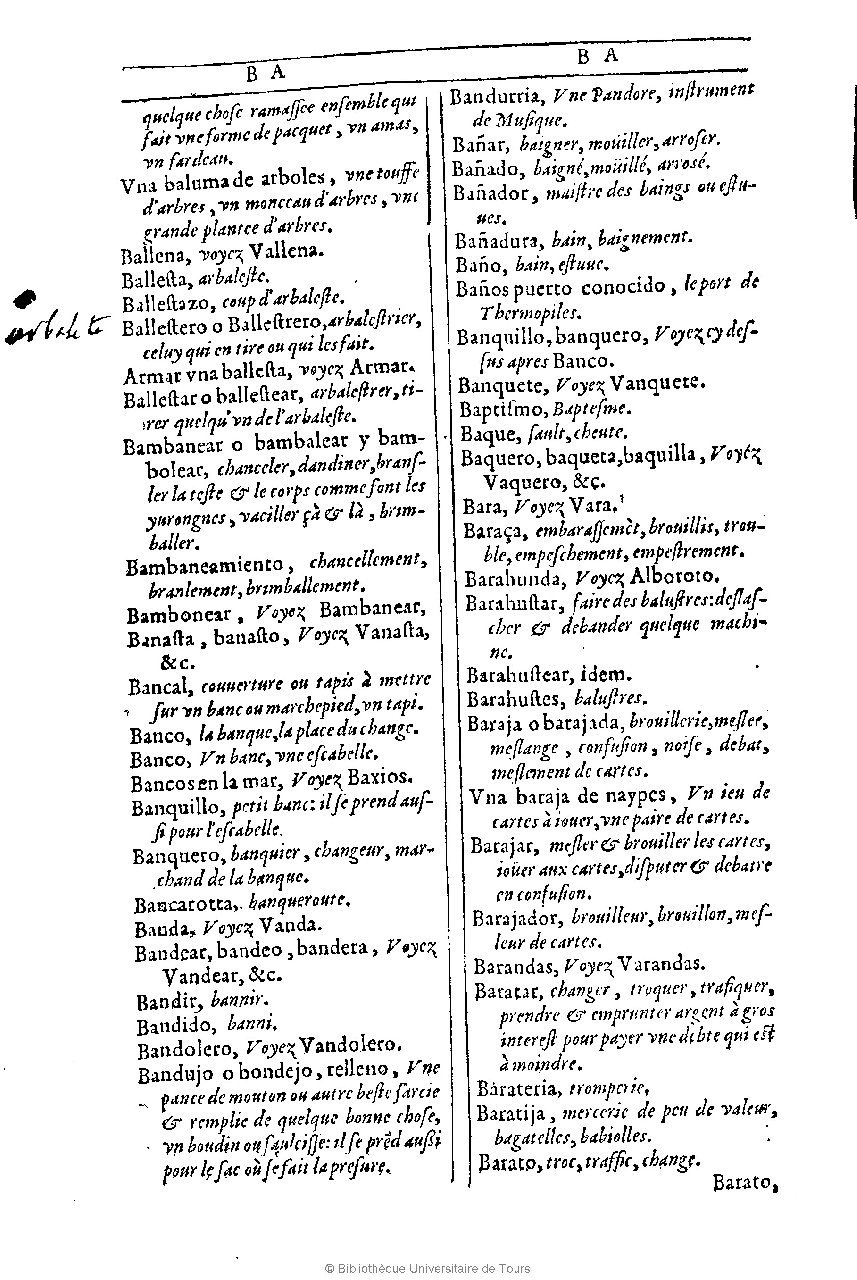 B A
quelque choſe ramaſſee enſemble qui
fait vne forme de pacquet, vn amas,
vn fardeau.
Vna baluma de arboles, vne touffe
d'arbres, vn monceau d'arbres, vne
grande plantee d'arbres.
Ballena, voyez Vallena.
Balleſta, arbaleſte.
Balleſtazo, coup d'arbaleſte.
arbalete
Balleſtero o Balleſtrero, arbaleſtrier,
celuy qui en tire ou qui les fait.
Armar vna balleſta, voyez Armar.
Balleſtar o balleſtear, arbaleſtrer, ti-
rer quelqu'vn de l'arbaleſte.
Bambanear o bambalear y bam-
bolear, chanceler, dandiner, branſ-
ler la teſte & le corps comme font les
yurongnes, vaciller çà & là, brim-
baller.
Bambaneamiento, chancellement,
branlement, brimballement.
Bambonear, Voyez Bambanear,
Banaſta, banaſto, Voyez Vanaſta,
&c.
Bancal, couuerture ou tapis à mettre
ſur vn banc ou marchepied, vn tapi.
Banco, la banque, la place du change.
Banco, Vn banc, vne eſcabelle.
Bancos en la mar, Voyez Baxios.
Banquillo, petit banc: il ſe prend auſ-
ſi pour l'eſcabelle.
Banquero, banquier, changeur, mar-
chand de la banque.
Bancarotta, banqueroute.
Banda, Voyez Vanda.
Bandear, bandeo, bandera, Voyez
Vandear, &c.
Bandir, bannir.
Bandido, banni.
Bandolero, Voyez Vandolero.
Bandujo o bondejo, relleno, Vne
pance de mouton ou autre beſte farcie
& remplie de quelque bonne choſe,
vn boudin ou ſaulciſſe: il ſe prẽd auſſi
pour le ſac où ſe fait la preſure.
B A
Bandurria, Vne Pandore, inſtrument
de Muſique.
Bañar, baigner, moüiller, arroſer.
Bañado, baigné, moüillé, arrosé.
Bañador, maiſtre des baings ou eſtu-
ues.
Bañadura, bain, baignement.
Baño, bain, eſtuue.
Baños puerto conocido, le port de
Thermopiles.
Banquillo, banquero, Voyez cy deſ-
ſus apres Banco.
Banquete, Voyez Vanquete.
Baptiſmo, Bapteſme.
Baque, ſault, cheute.
Baquero, baqueta, baquilla, Voyéz
Vaquero, &ç.
Bara, Voyez Vara.
Baraça, embaraſſemẽt, brouillis, trou-
ble, empeſchement, empeſtrement.
Barahunda, Voyez Alboroto.
Barahuſtar, faire des baluſtres: deſlaſ-
cher & debander quelque machi-
ne.
Barahuſtear, idem.
Barahuſtes, baluſtres.
Baraja o barajada, brouillerie, meſlee,
meſlange, confuſion, noiſe, debat,
meſlement de cartes.
Vna baraja de naypes, Vn ieu de
cartes à iouer, vne paire de cartes.
Barajar, meſler & brouiller les cartes,
ioüer aux cartes, diſputer & debatre
en confuſion.
Barajador, brouilleur, brouillon, meſ-
leur de cartes.
Barandas, Voyez Varandas.
Baratar, changer, troquer, trafiquer,
prendre & emprunter argent à gros
intereſt pour payer vne debte qui eſt
à moindre.
Barateria, tromperie,
Baratija, mercerie de peu de valeur,
bagatelles, babiolles.
Barato, troc, traffic, change.
Barato,
© Bibliothèque Universitaire de Tours